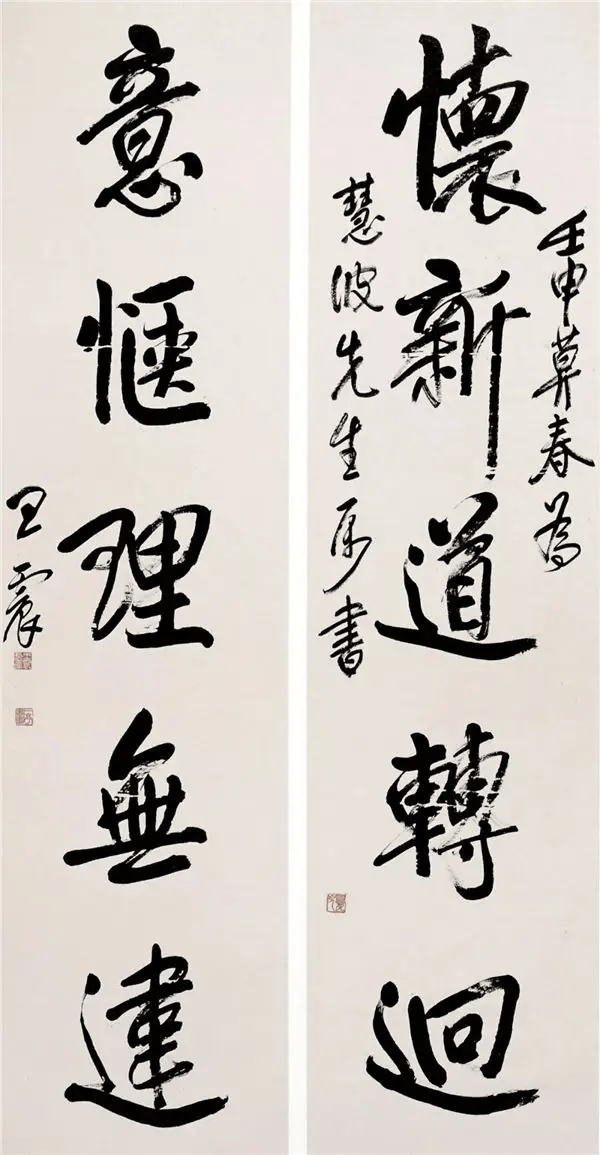 壬申莫春為
懷新道轉迴
慧波先生属書
意愜理無違
王震